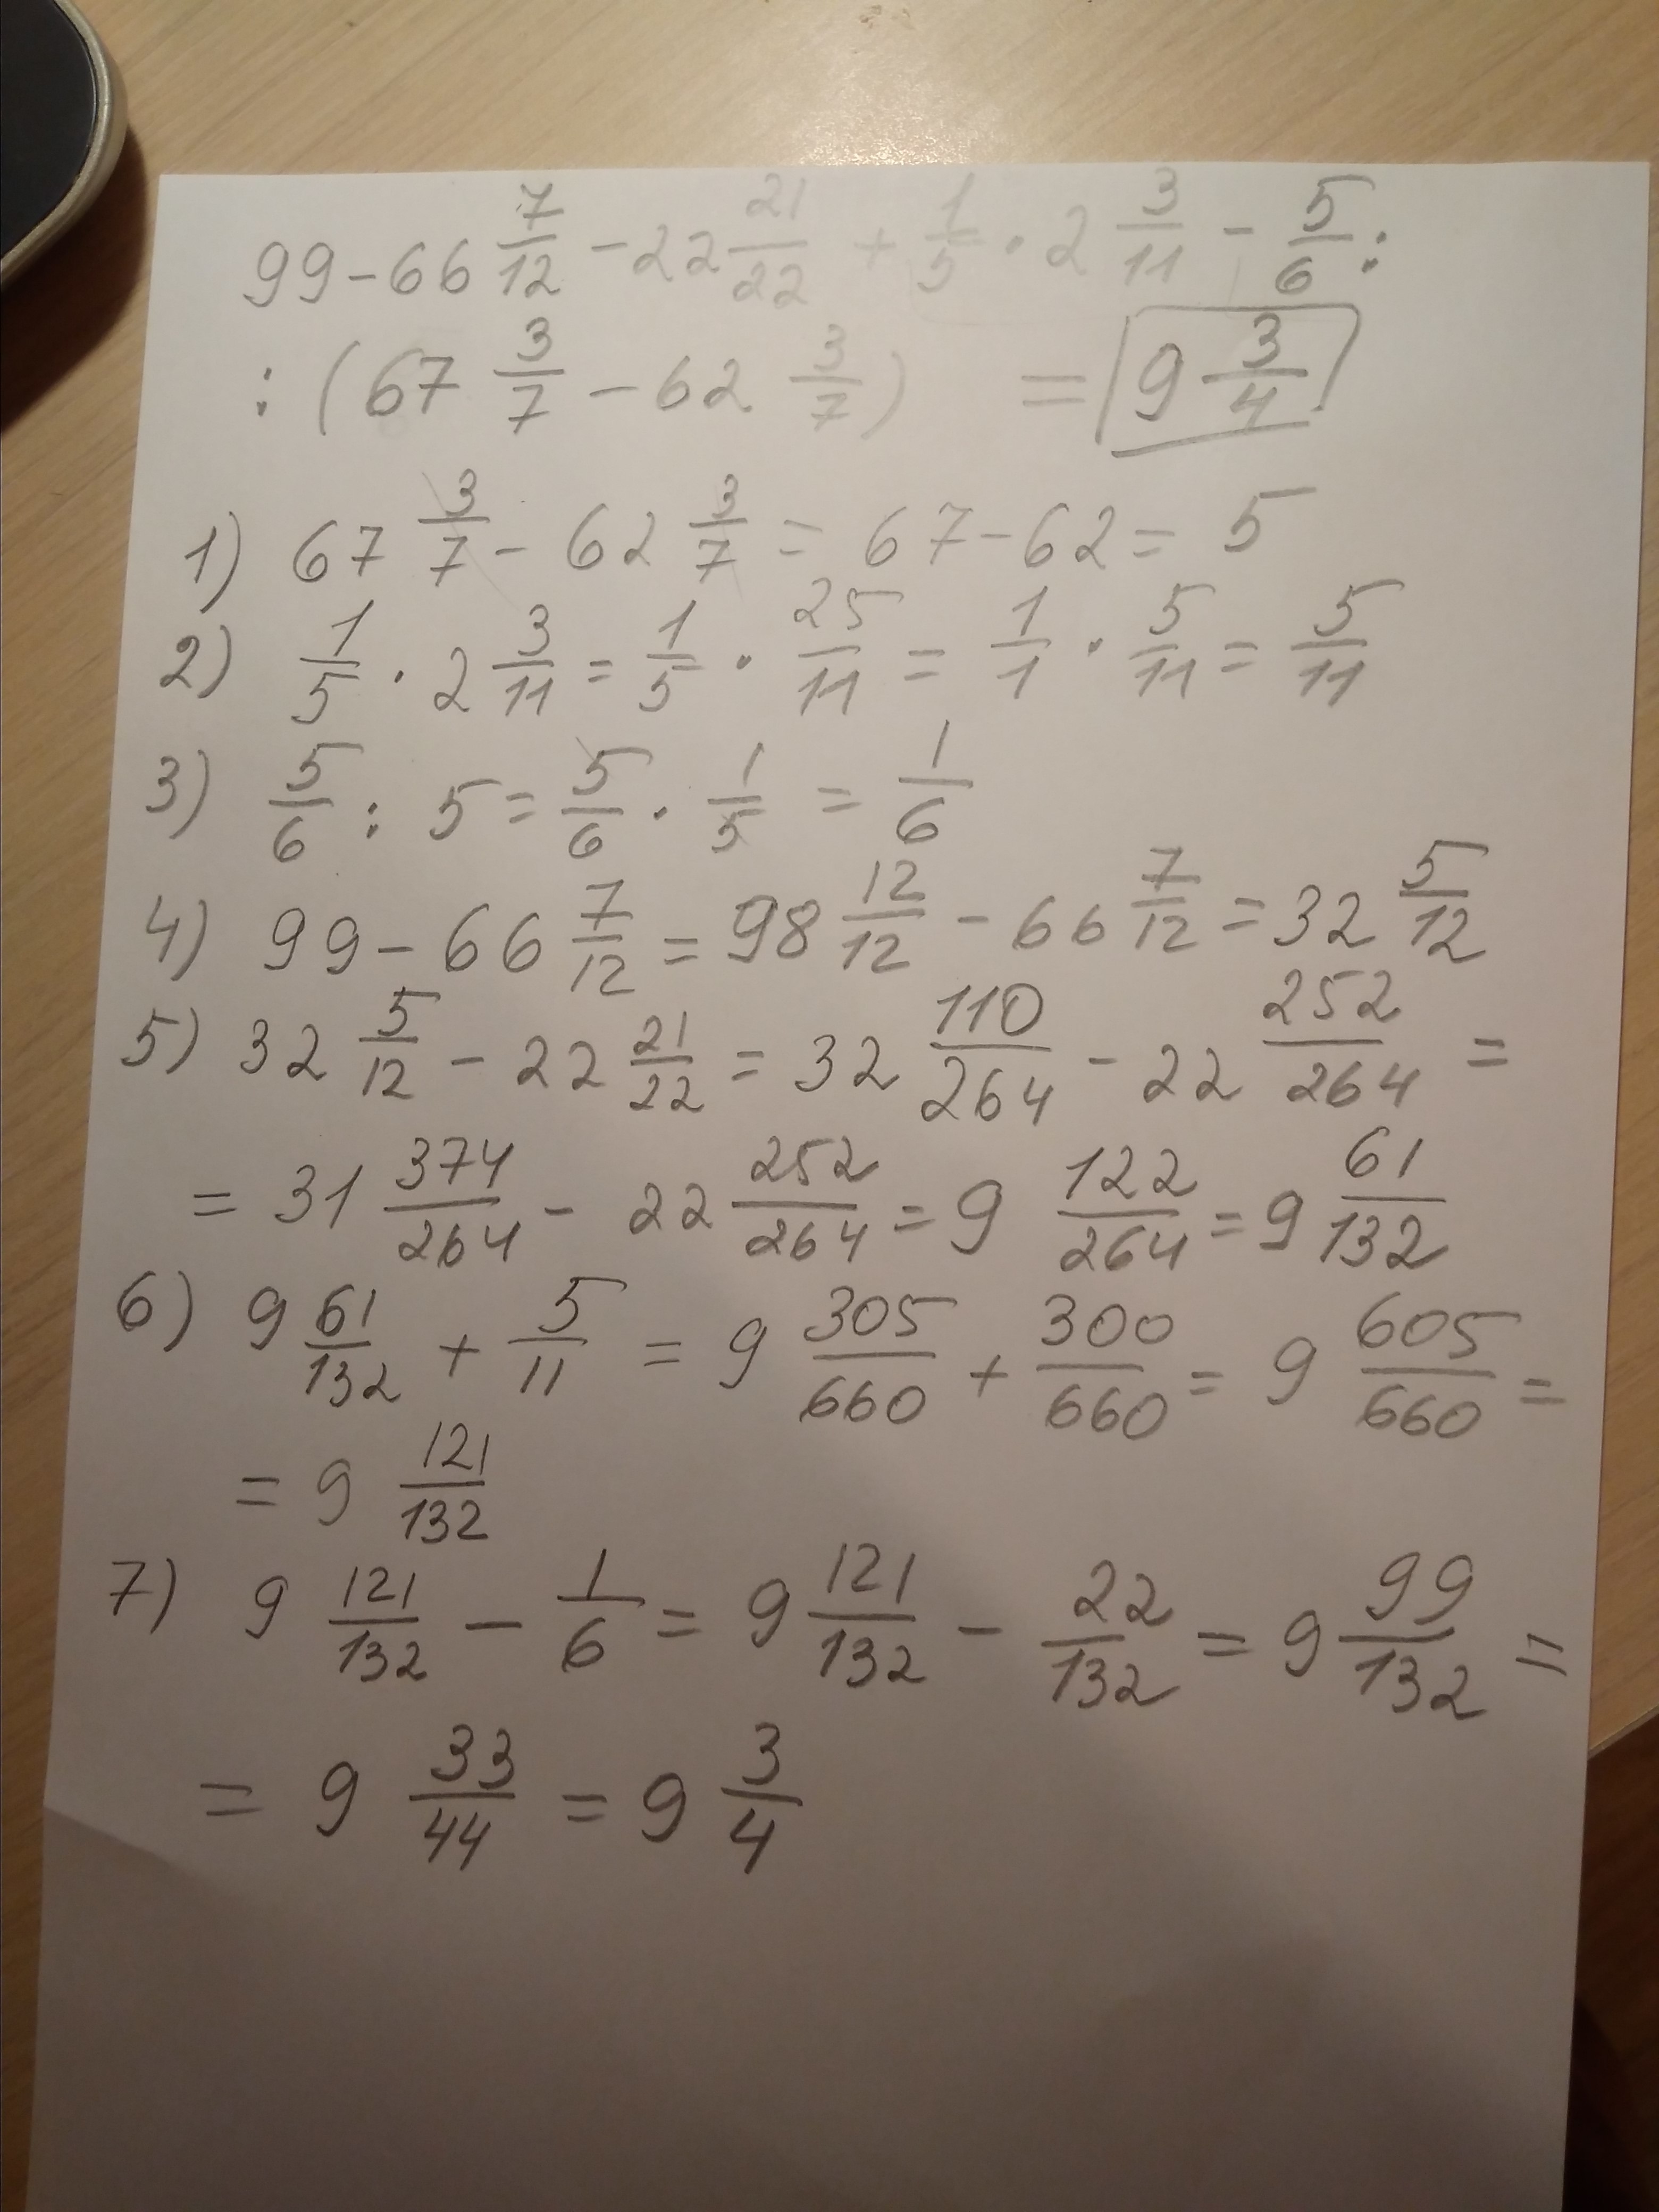 99 - 66 7/12 - 22 21/22 + 1/5 · 2 3/11 - 5/6 :
: (67 3/7 - 62 3/7) = 9 3/4
1) 67 3/7 - 62 3/7 = 67 - 62 = 5
2) 1/5 · 2 3/11 = 1/5 · 25/11 = 1/1 · 5/11 = 5/11
3) 5/6 : 5 = 5/6 · 1/5 = 1/6
4) 99 - 66 7/12 = 98 12/12 - 66 7/12 = 32 5/12
5) 32 5/12 - 22 21/22 = 32 110/264 - 22 252/264 =
= 31 374/264 - 22 252/264 = 9 122/264 = 9 61/132
6) 9 61/132 + 5/11 = 9 305/660 + 300/660 = 9 605/660 =
= 9 121/132
7) 9 121/132 - 1/6 = 9 121/132 - 22/132 = 9 99/132 =
= 9 33/44 = 9 3/4